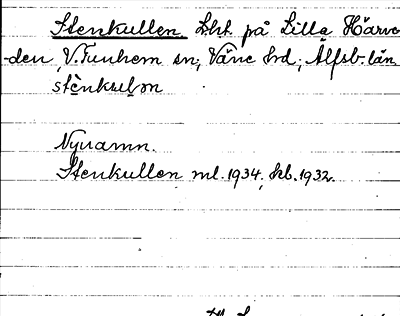 Stenkullen Lht. på Lilla Härvo-
den V.Tunhem sn; Väne hd; Älfsb. län
stènkulɷn
Nynamn.
Stenkullen ml. 1934, kb. 1932